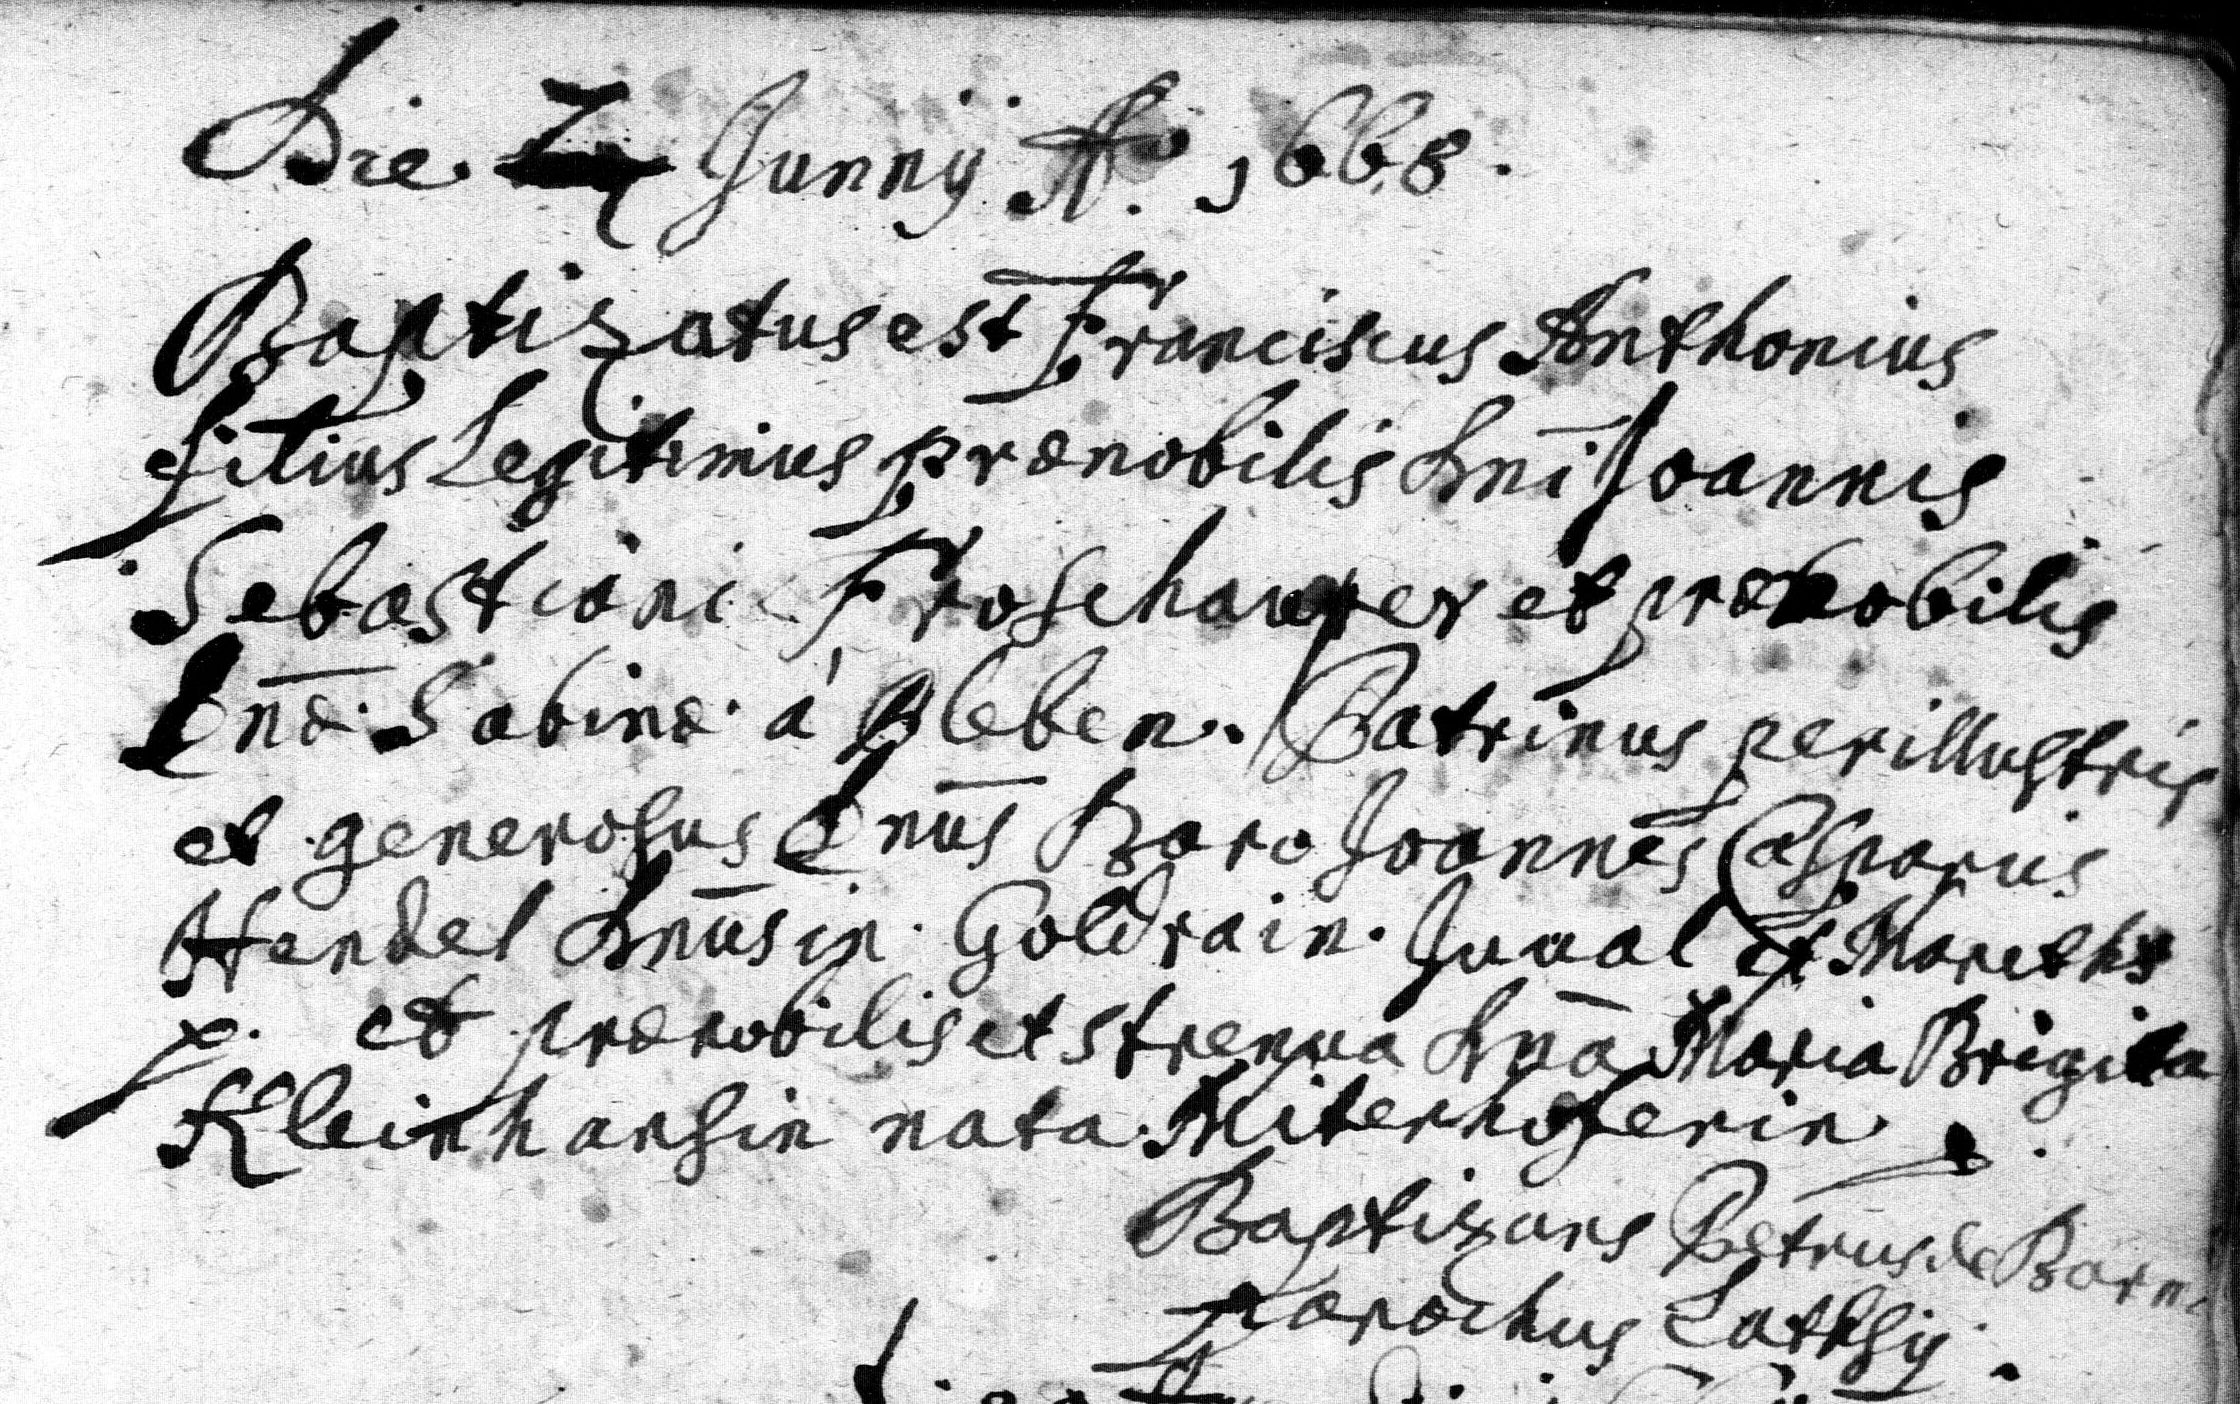 Die 2 Junnÿ Aº. 1668.
Baptizatus est Franciscus Anthonius
filius Legitimus prænobilis Dnĩ Joannis
Sebastiani Froschauer et prænobilis
Dnæ. Sabinæ. à Pleben. / Patrinus perillustris
et generosus Dnus Baro Joannes Casparus
Hendel Dnus in Goldrain. Juual et
et prænobilis et strenua Dna Maria Brigita
Kleinhansin nata Miterhoferin.
Baptizans Petrus de
parochus Latschÿ.